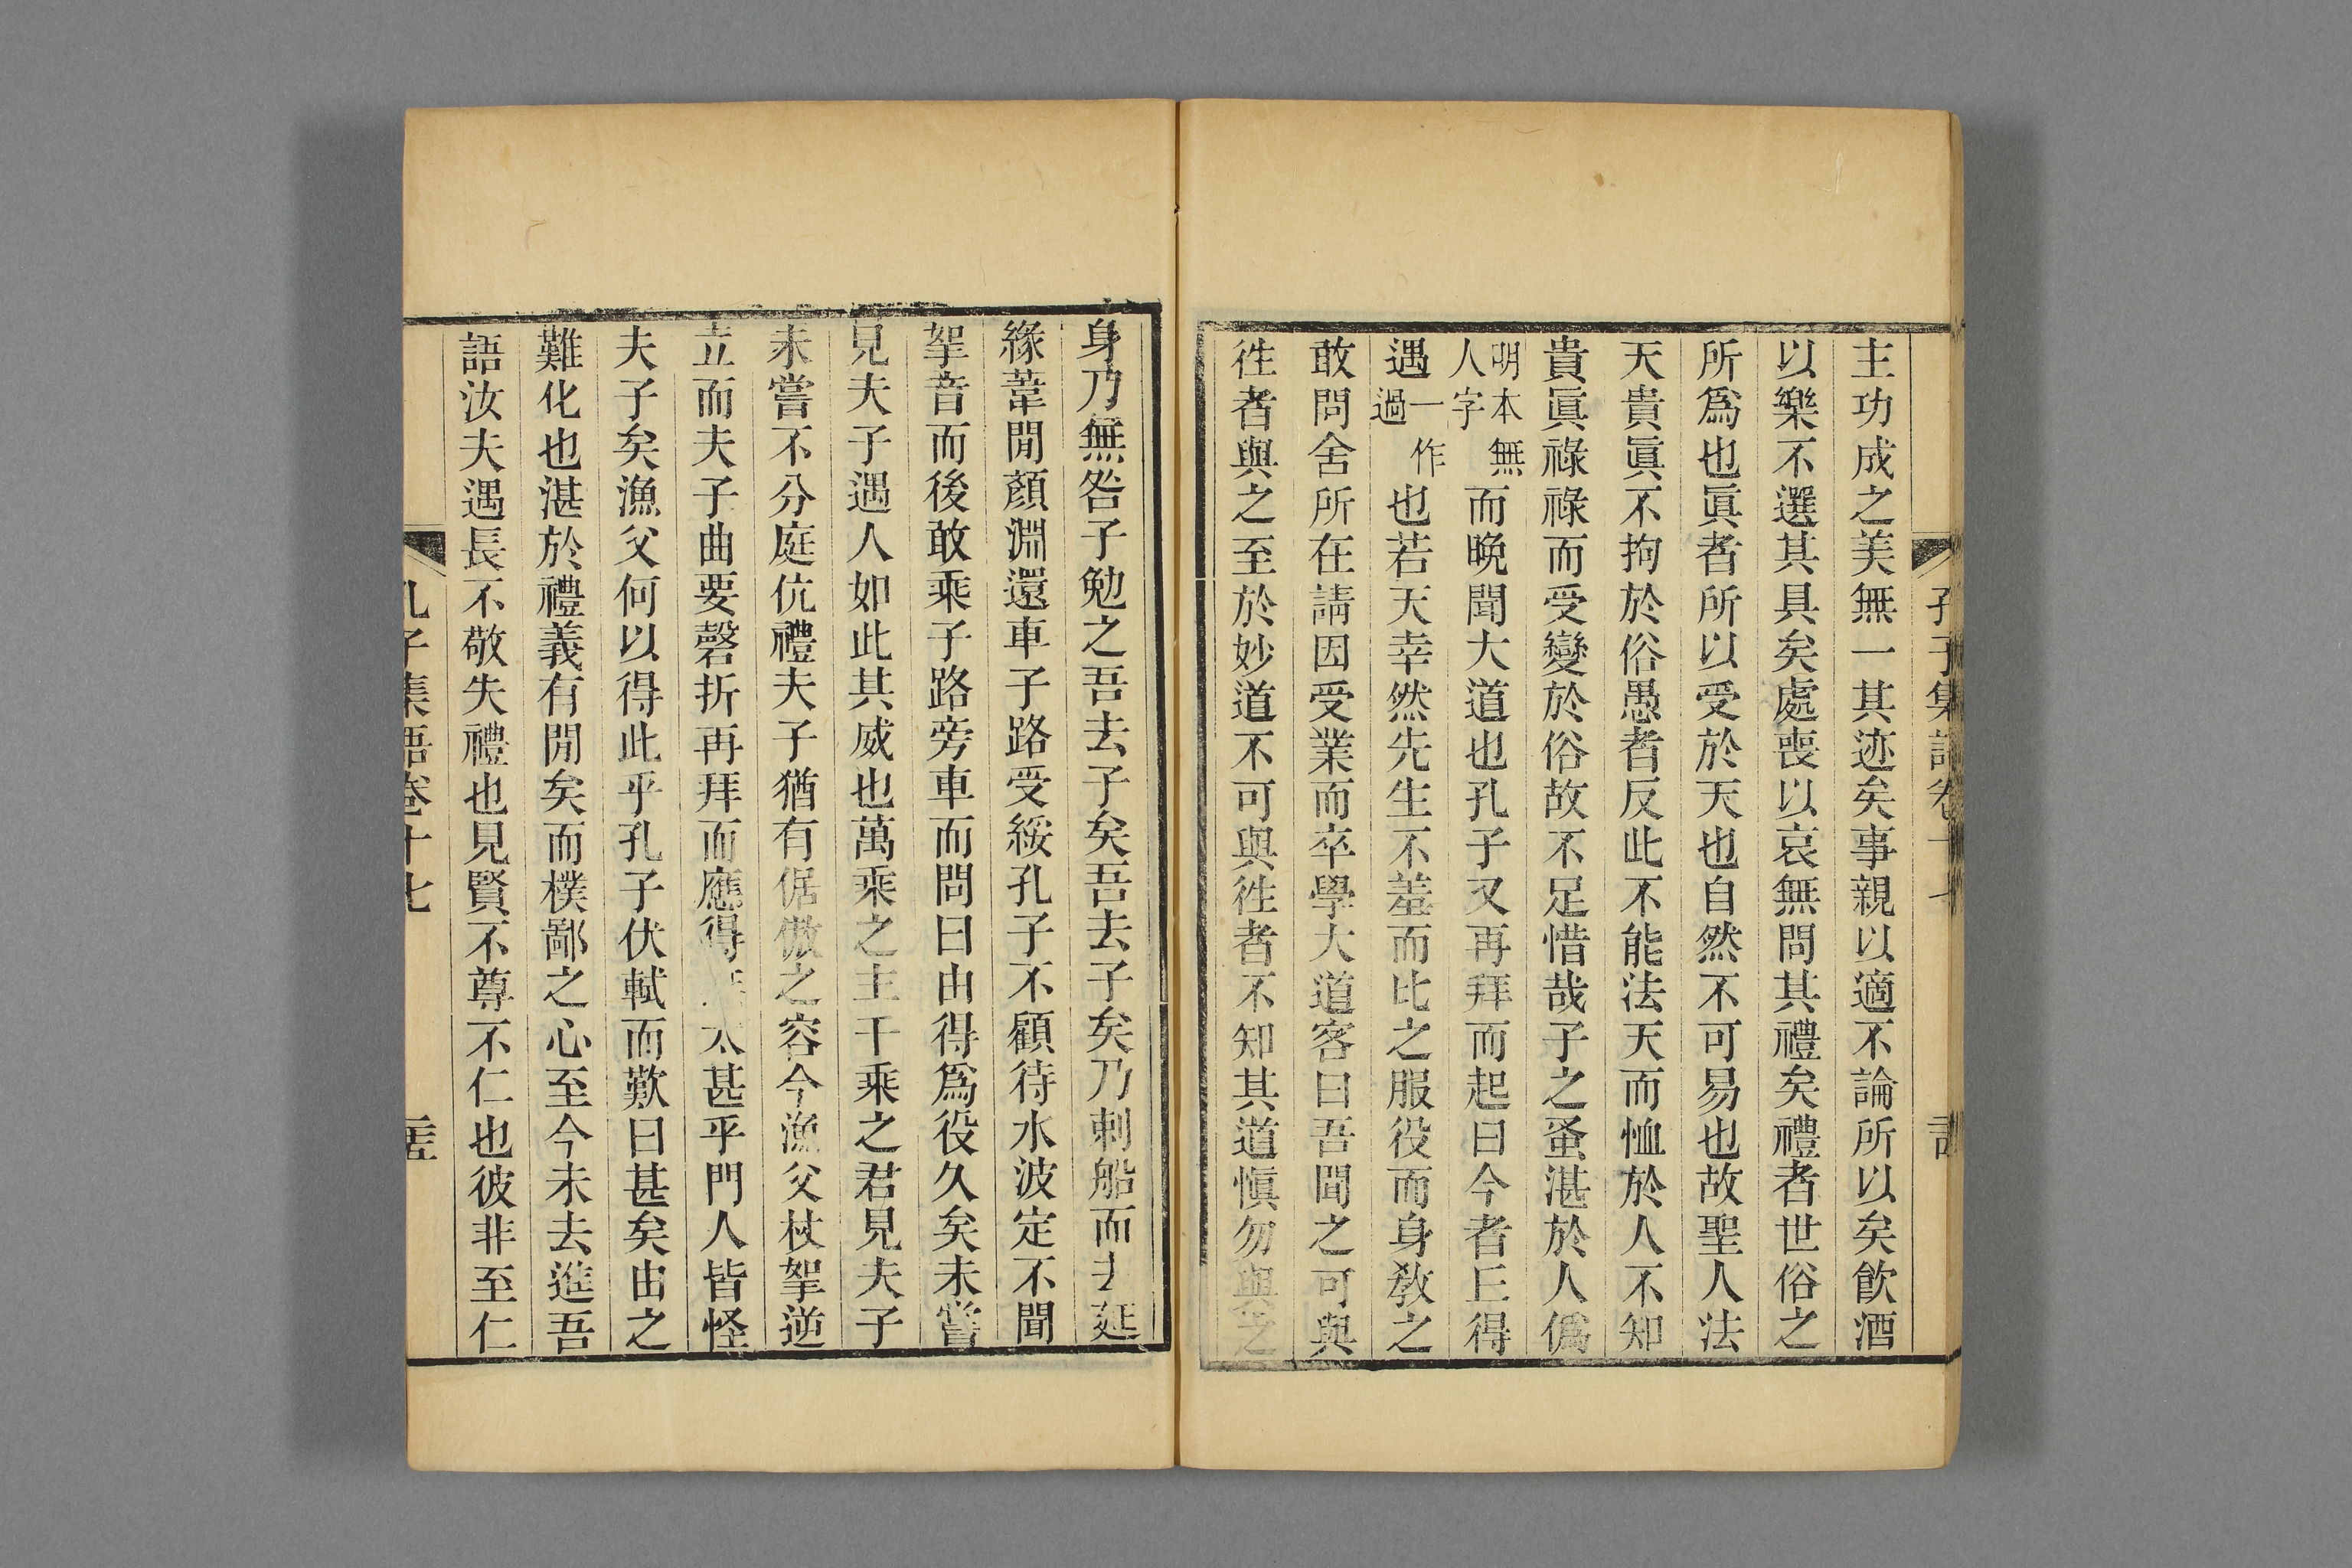 孔子集語卷十七
主功成之美無一其迹矣事親以適不論所以矣飮酒
以樂不選其具矣處喪以哀無問其禮矣禮者世俗之
所爲也眞者所以受於天也自然不可易也故聖人法
天貴眞不拘於俗愚者反此不能法天而恤於人不知
貴眞祿祿而受變於俗故不足惜哉子之蚤湛於人僞
明本無人字而晚聞大道也孔子又再拜而起曰今者丘得
遇一作過也若天幸然先生不羞而比之服役而身敎之
敢問舍所在請因受業而卒學大道客曰吾聞之可與
徃者與之至於妙道不可與徃者不知其道愼勿與之
身乃無咎子勉之吾去子矣吾去子矣乃刺船而去延
緣葦閒顏淵還車子路受綏孔子不顧待水波定不聞
挐音而後敢乘子路旁車而問曰由得爲役久矣未嘗
見夫子遇人如此其威也萬乘之主千乘之君見夫子
未嘗不分庭伉禮夫子猶有倨傲之容今漁父杖挐逆
立而夫子曲要磬折再拜而應得太甚乎門人皆怪
夫子矣漁父何以得此乎孔子伏軾而歎曰甚矣由之
難化也湛於禮義有閒矣而樸鄙之心至今未去進吾
語汝夫遇長不敬失禮也見賢不尊不仁也彼非至仁
孔子集語卷十七